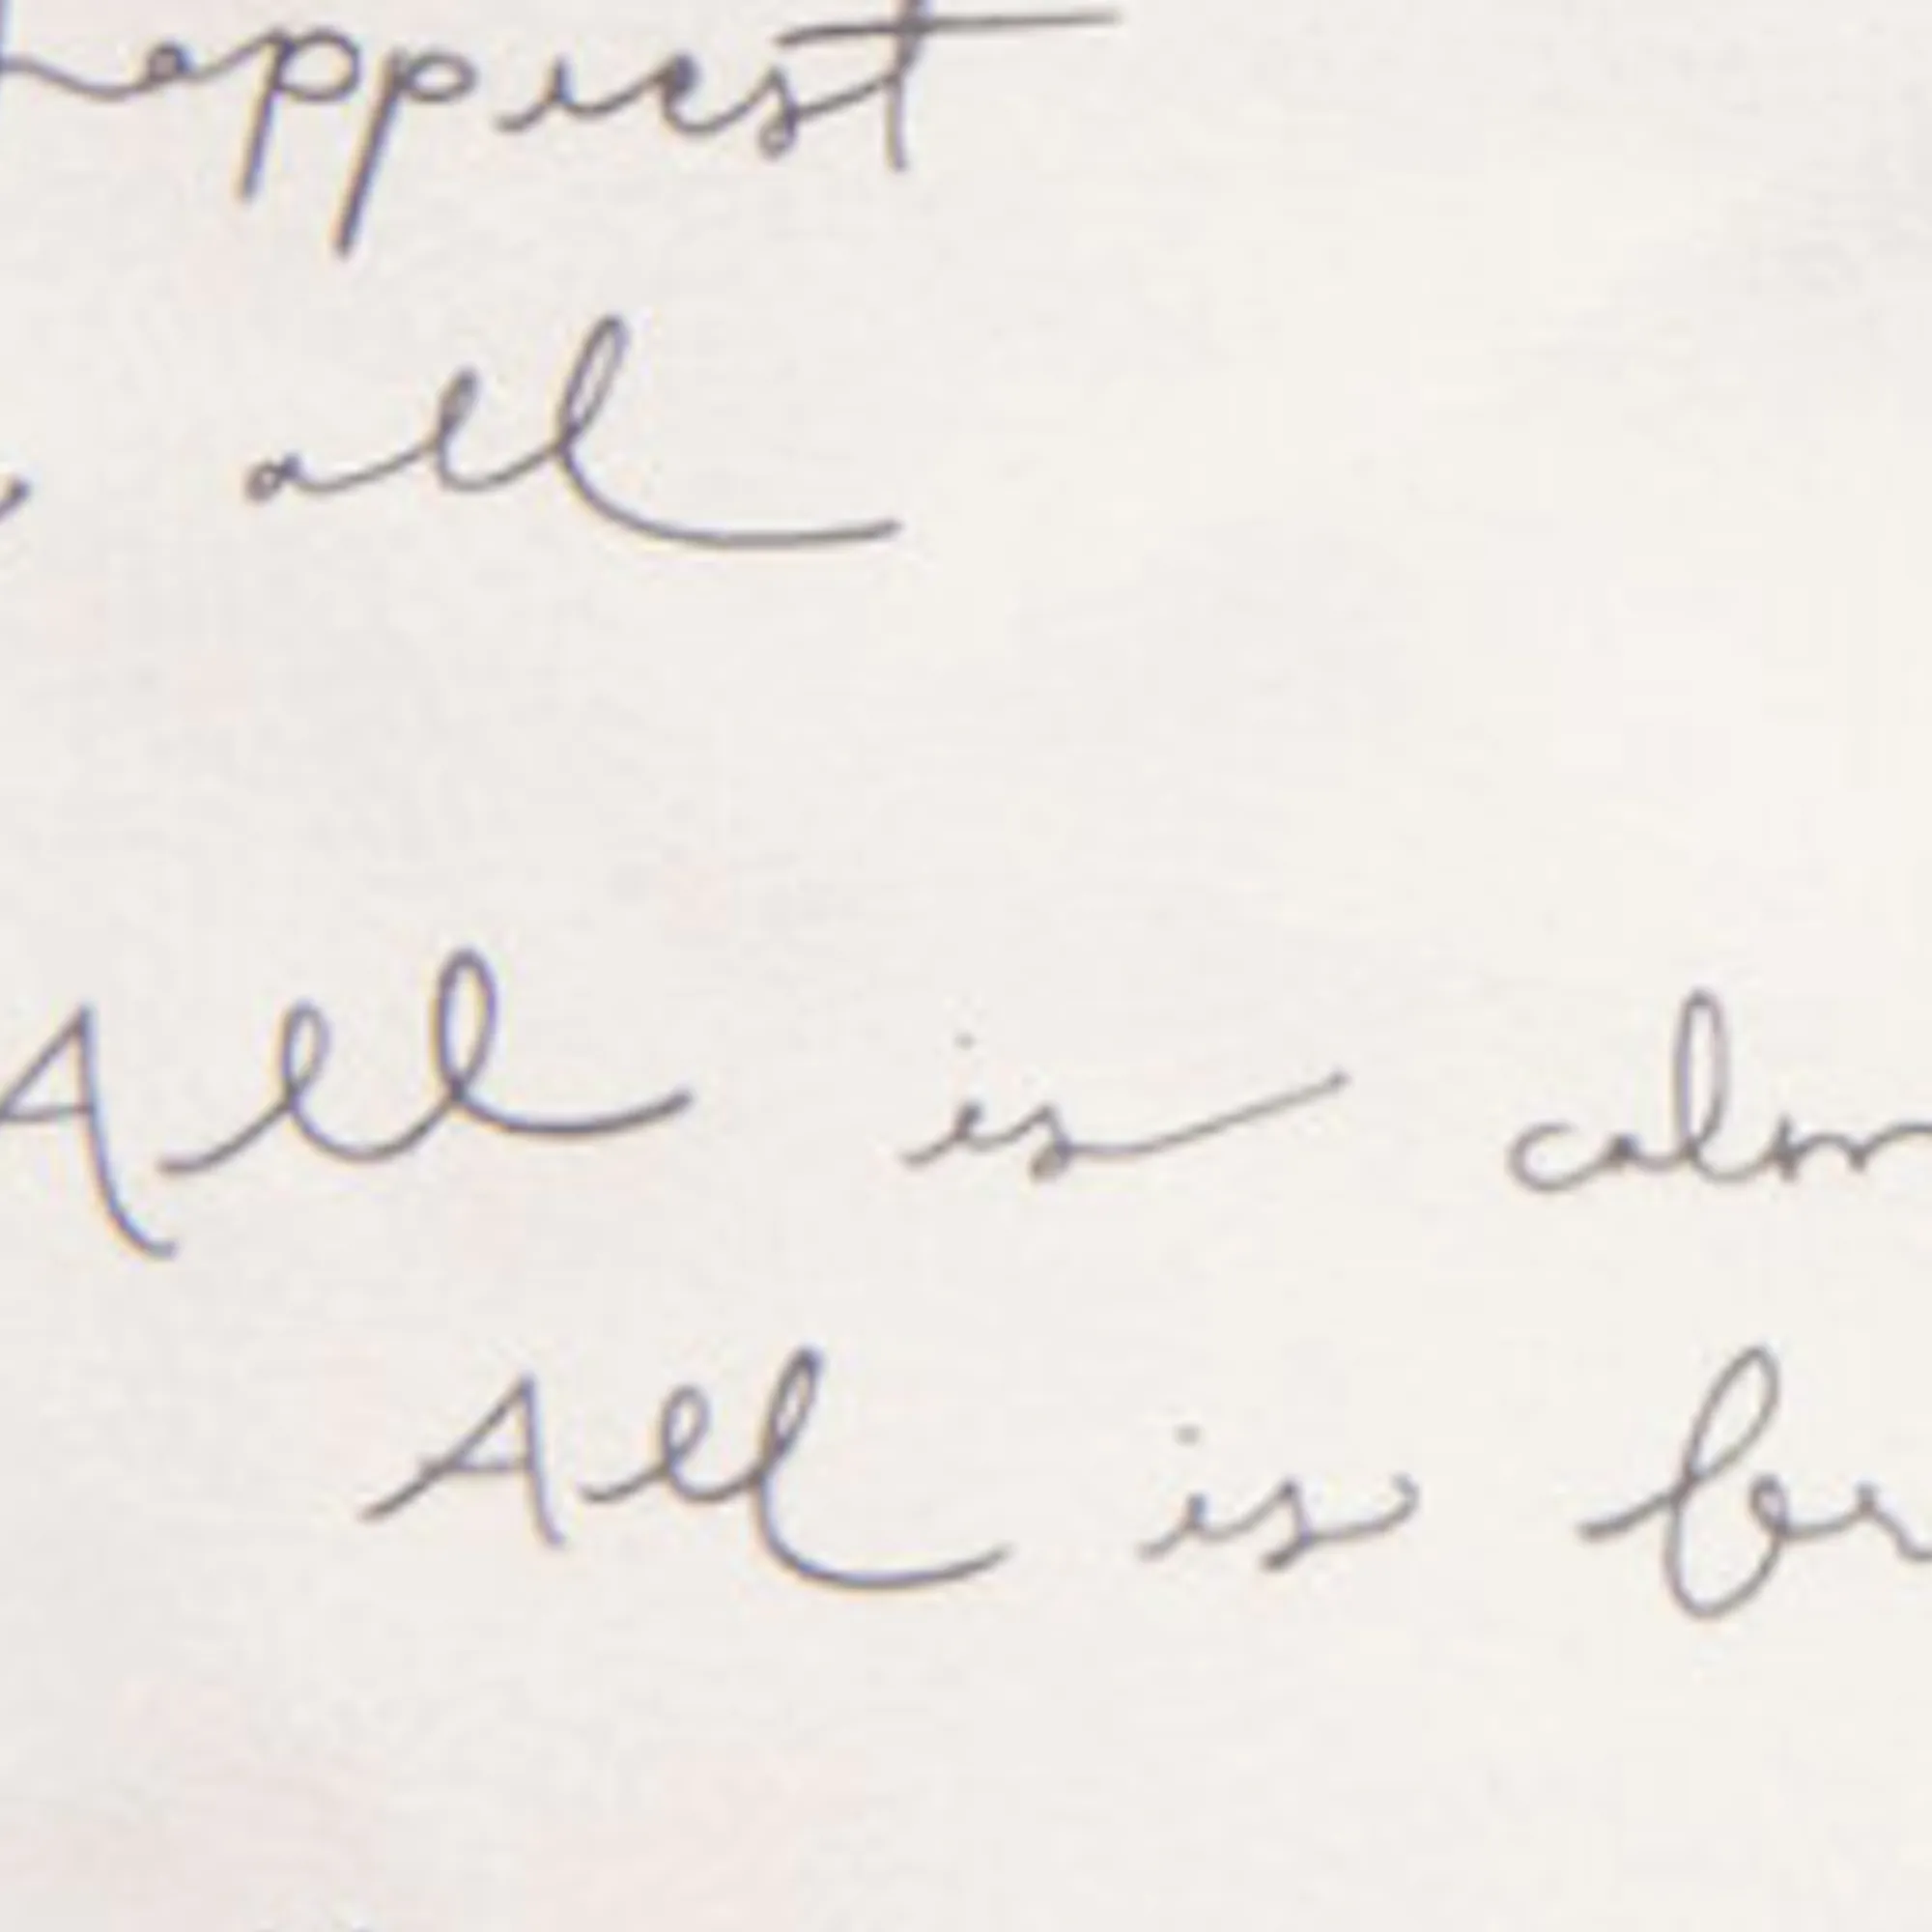 happiest
all
All is calm
All is br